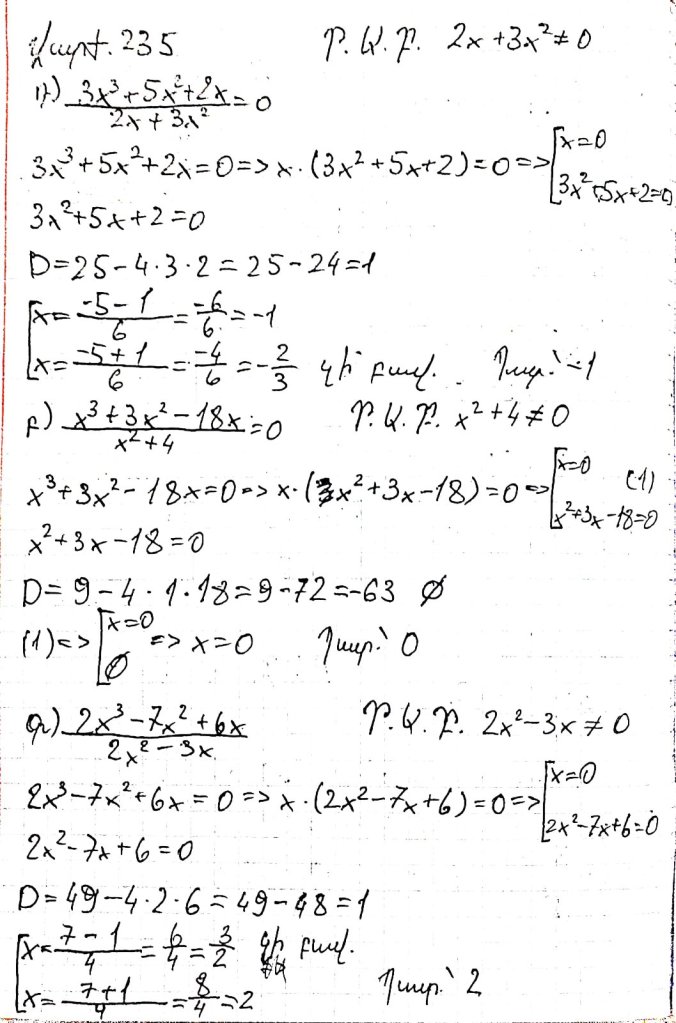 Վարժ. 235 Ր. Ա. Բ. 2x + 3x² ≠ 0
ա) (3x³ + 5x² + 2x)/(2x + 3x²) = 0
3x³ + 5x² + 2x = 0 => x · (3x² + 5x + 2) = 0 => [x = 0
3x² + 5x + 2 = 0
3x² + 5x + 2 = 0
D = 25 - 4 · 3 · 2 = 25 - 24 = 1
[x = (-5 - 1)/6 = -6/6 = -1
x = (-5 + 1)/6 = -4/6 = -2/3 չի բավ. Պատ.՝ -1
բ) (x³ + 3x² - 18x)/(x² + 4) = 0 x² + 4 ≠ 0
x³ + 3x² - 18x = 0 => x · (x² + 3x - 18) = 0 => [x = 0 (1)
x² + 3x - 18 = 0
x² + 3x - 18 = 0
D = 9 - 4 · 1 · 18 = 9 - 72 = -63 ∅
(1) <=> [x = 0 => x = 0 Պատ.՝ 0
∅
գ) (2x³ - 7x² + 6x)/(2x² - 3x) 2x² - 3x ≠ 0
2x³ - 7x² + 6x = 0 => x · (2x² - 7x + 6) = 0 => [x = 0
2x² - 7x + 6 = 0
2x² - 7x + 6 = 0
D = 49 - 4 · 2 · 6 = 49 - 48 = 1
[x = (7 - 1)/4 = 6/4 = 3/2 չի բավ.
x = (7 + 1)/4 = 8/4 = 2 Պատ.՝ 2